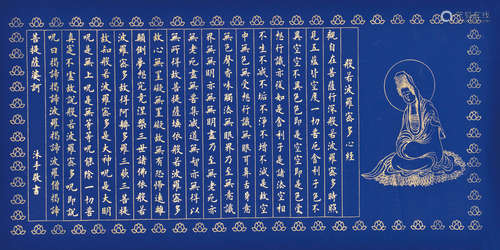 般若波羅蜜多心經
觀自在菩薩行深般若波羅蜜多時照
見五蘊皆空度一切苦厄舍利子色不
異空空不異色色即是空空即是色受
想行識亦復如是舍利子是諸法空相
不生不滅不垢不淨不增不減是故空
中無色無受想行識無眼耳鼻舌身意
無色聲香味觸法無眼界乃至無意識
界無無明亦無無明盡乃至無老死亦
無老死盡無苦集滅道無智亦無得以
無所得故菩提薩埵依般若波羅蜜多
故心無罣礙無罣礙故無有恐怖遠離
顛倒夢想究竟涅槃三世諸佛依般若
波羅蜜多故得阿耨多羅三藐三菩提
故知般若波羅蜜多是大神呪是大明
呪是無上呪是無等等呪能除一切苦
真實不虛故說般若波羅蜜多呪即說
呪曰揭諦揭諦波羅揭諦波羅僧揭諦
菩提薩婆訶
沐手敬書